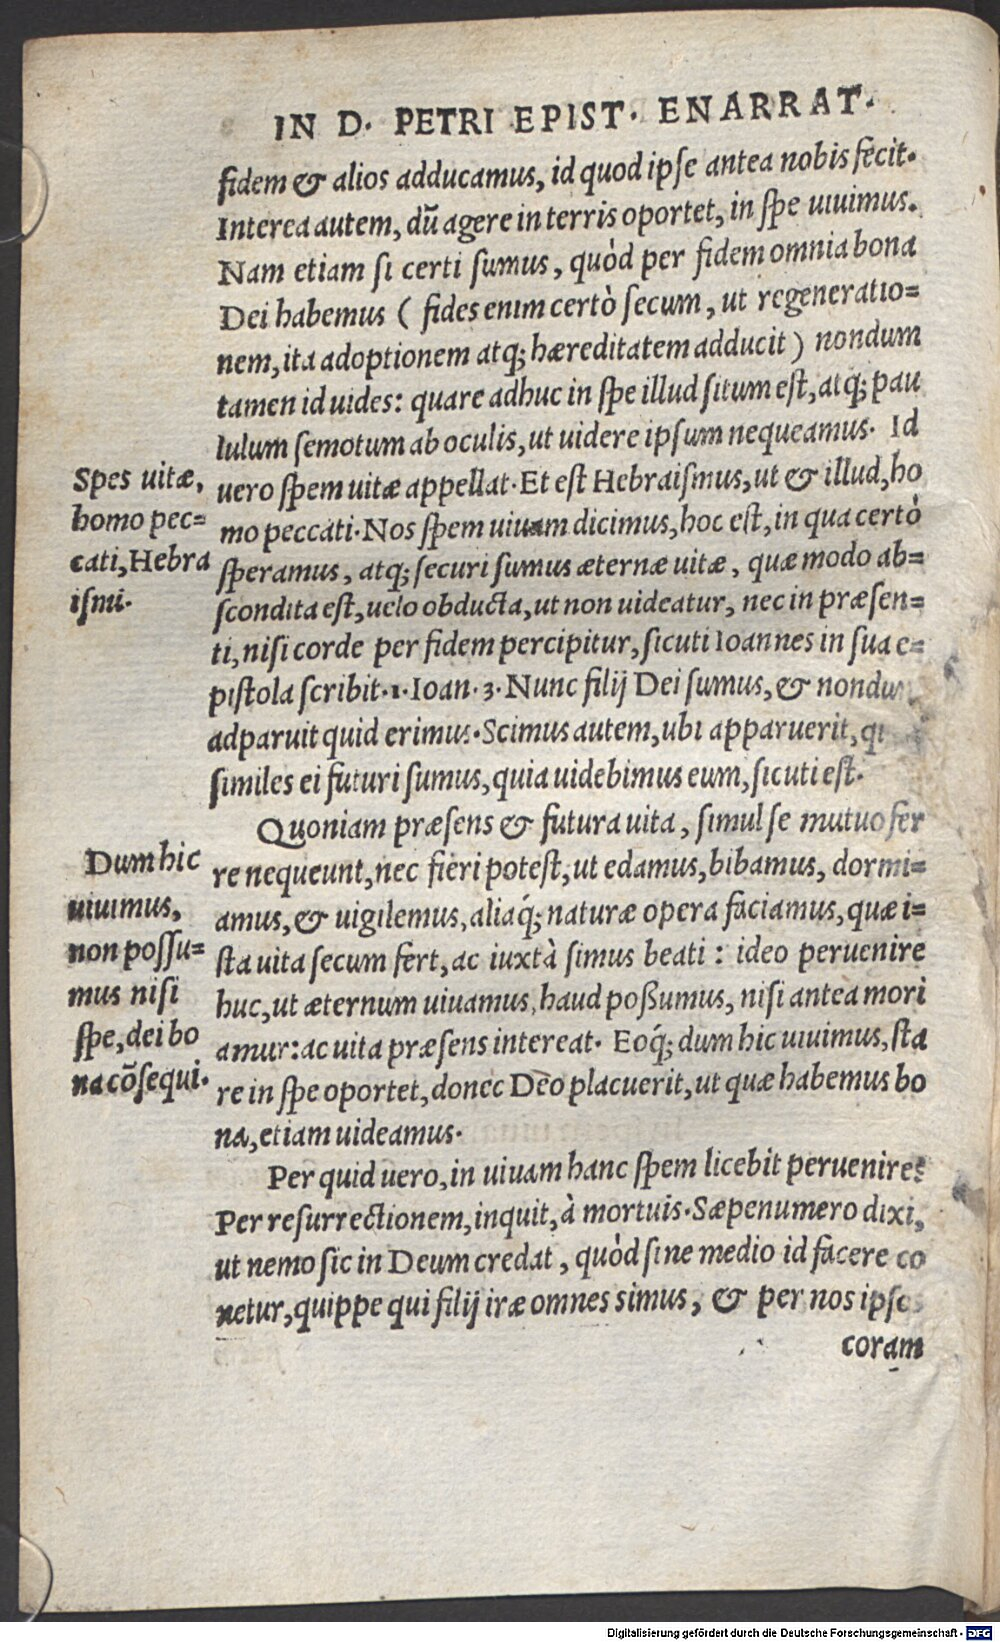 IN D. PETRI EPIST. ENARRAT.
fidem & alios adducamus, id quod ipse antea nobis fecit.
Interea autem, dū agere in terris oportet, in spe uiuimus.
Nam etiam si certi sumus, quòd per fidem omnia bona
Dei habemus ( fides enim certò secum, ut regeneratio=
nem, ita adoptionem atq; hæreditatem adducit ) nondum
tamen id uides: quare adhuc in spe illud situm est, atq; pau
lulum semotum ab oculis, ut uidere ipsum nequeamus. Id
uero spem uitæ appellat. Et est Hebraismus, ut & illud, ho
mo peccati. Nos spem uiuam dicimus, hoc est, in qua certò
speramus, atq; securi sumus æternæ uitæ, quæ modo ab=
scondita est, uelo obducta, ut non uideatur, nec in præsen=
ti, nisi corde per fidem percipitur, sicuti Ioannes in sua e=
pistola scribit. 1. Ioan. 3. Nunc filij Dei sumus, & nondu
adparuit quid erimus. Scimus autem, ubi apparuerit,
similes ei futuri sumus, quia uidebimus eum, sicuti est.
Spes uitæ,
homo pec=
cati, Hebra
ismi.
Quoniam præsens & futura uita, simul se mutuo fer
re nequeunt, nec fieri potest, ut edamus, bibamus, dormi=
amus, & uigilemus, aliaq́; naturæ opera faciamus, quæ i=
sta uita secum fert, ac iuxtà simus beati : ideo peruenire
huc, ut æternum uiuamus, haud poßumus, nisi antea mori
amur: ac uita præsens intereat. Eoq́; dum hic uiuimus, sta
re in spe oportet, donec Deo placuerit, ut quæ habemus bo
na, etiam uideamus.
Dum hic
uiuimus,
non possu=
mus nisi
spe, dei bo
na cōsequi.
Per quid uero, in uiuam hanc spem licebit peruenire?
Per resurrectionem, inquit, à mortuis. Sæpenumero dixi,
ut nemo sic in Deum credat, quòd sine medio id facere co
netur, quippe qui filij iræ omnes simus, & per nos ipsos
coram
Digitalisierung gefördert durch die Deutsche Forschungsgemeinschaft - DFG